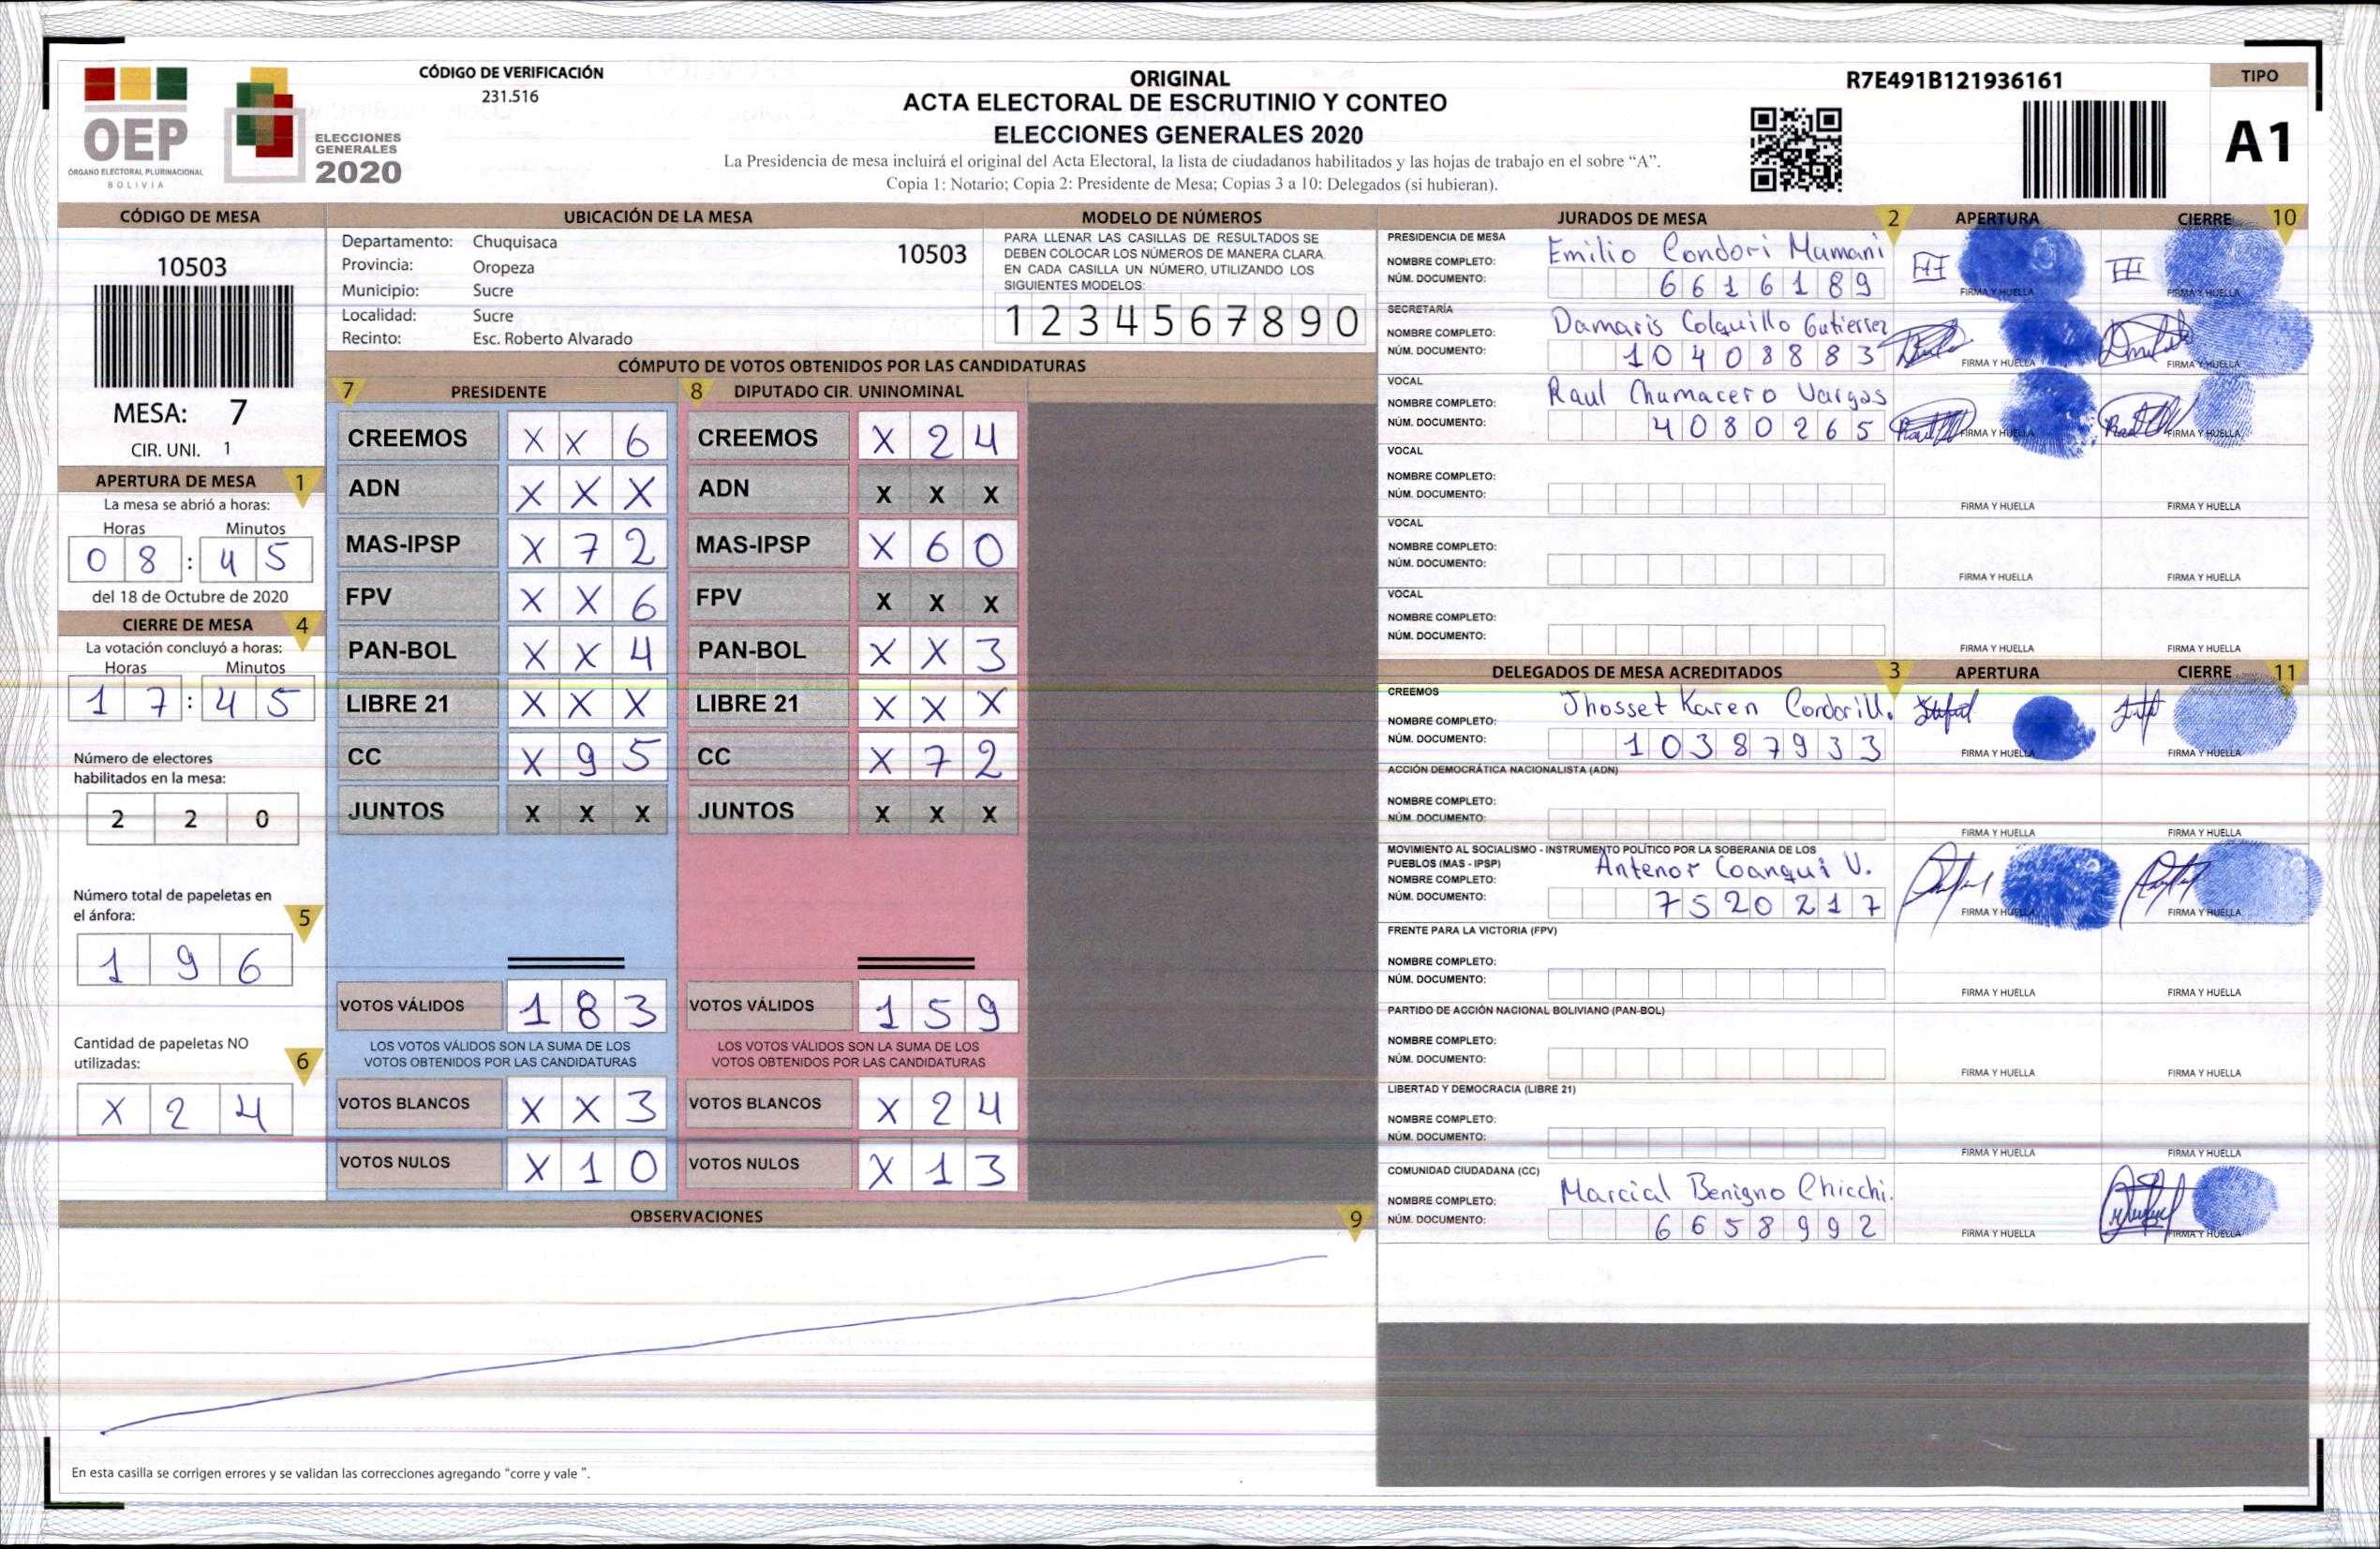 OEP
ÓRGANO ELECTORAL PLURINACIONAL
BOLIVIA
ELECCIONES
GENERALES
2020
CÓDIGO DE VERIFICACIÓN
231.516
ORIGINAL
ACTA ELECTORAL DE ESCRUTINIO Y CONTEO
ELECCIONES GENERALES 2020
La Presidencia de mesa incluirá el original del Acta Electoral, la lista de ciudadanos habilitados y las hojas de trabajo en el sobre “A”.
Copia 1: Notario; Copia 2: Presidente de Mesa; Copias 3 a 10: Delegados (si hubieran).
R7E491B121936161
TIPO
A1
CÓDIGO DE MESA
10503
MESA: 7
CIR. UNI. 1
APERTURA DE MESA 1
La mesa se abrió a horas:
Horas Minutos
08:45
del 18 de Octubre de 2020
CIERRE DE MESA 4
La votación concluyó a horas:
Horas Minutos
17:45
Número de electores
habilitados en la mesa:
2 2 0
Número total de papeletas en
el ánfora: 5
1 9 6
Cantidad de papeletas NO
utilizadas: 6
X 2 4
UBICACIÓN DE LA MESA
Departamento: Chuquisaca 10503
Provincia: Oropeza
Municipio: Sucre
Localidad: Sucre
Recinto: Esc. Roberto Alvarado
MODELO DE NÚMEROS
PARA LLENAR LAS CASILLAS DE RESULTADOS SE
DEBEN COLOCAR LOS NÚMEROS DE MANERA CLARA
EN CADA CASILLA UN NÚMERO, UTILIZANDO LOS
SIGUIENTES MODELOS:
1 2 3 4 5 6 7 8 9 0
CÓMPUTO DE VOTOS OBTENIDOS POR LAS CANDIDATURAS
7 PRESIDENTE 8 DIPUTADO CIR. UNINOMINAL
CREEMOS X X 6 CREEMOS X 2 4
ADN X X X ADN X X X
MAS-IPSP X 7 2 MAS-IPSP X 6 0
FPV X X 6 FPV X X X
PAN-BOL X X 4 PAN-BOL X X 3
LIBRE 21 X X X LIBRE 21 X X X
CC X 9 5 CC X 7 2
JUNTOS X X X JUNTOS X X X
VOTOS VÁLIDOS 1 8 3 VOTOS VÁLIDOS 1 5 9
LOS VOTOS VÁLIDOS SON LA SUMA DE LOS LOS VOTOS VÁLIDOS SON LA SUMA DE LOS
VOTOS OBTENIDOS POR LAS CANDIDATURAS VOTOS OBTENIDOS POR LAS CANDIDATURAS
VOTOS BLANCOS X X 3 VOTOS BLANCOS X 2 4
VOTOS NULOS X 1 0 VOTOS NULOS X 1 3
OBSERVACIONES 9
En esta casilla se corrigen errores y se validan las correcciones agregando “corre y vale ”.
JURADOS DE MESA 2 APERTURA CIERRE 10
PRESIDENCIA DE MESA
NOMBRE COMPLETO: Emilio Condori Mamani
NÚM. DOCUMENTO: 6616189 FIRMA Y HUELLA FIRMA Y HUELLA
SECRETARÍA
NOMBRE COMPLETO: Damaris Colquillo Gutierrez
NÚM. DOCUMENTO: 10408883 FIRMA Y HUELLA FIRMA Y HUELLA
VOCAL
NOMBRE COMPLETO: Raul Chumacero Vargas
NÚM. DOCUMENTO: 4080265 FIRMA Y HUELLA FIRMA Y HUELLA
VOCAL
NOMBRE COMPLETO:
NÚM. DOCUMENTO: FIRMA Y HUELLA FIRMA Y HUELLA
VOCAL
NOMBRE COMPLETO:
NÚM. DOCUMENTO: FIRMA Y HUELLA FIRMA Y HUELLA
VOCAL
NOMBRE COMPLETO:
NÚM. DOCUMENTO: FIRMA Y HUELLA FIRMA Y HUELLA
DELEGADOS DE MESA ACREDITADOS 3 APERTURA CIERRE 11
CREEMOS
NOMBRE COMPLETO: Jhosset Karen
NÚM. DOCUMENTO: 10387933 FIRMA Y HUELLA FIRMA Y HUELLA
ACCIÓN DEMOCRÁTICA NACIONALISTA (ADN)
NOMBRE COMPLETO:
NÚM. DOCUMENTO: FIRMA Y HUELLA FIRMA Y HUELLA
MOVIMIENTO AL SOCIALISMO - INSTRUMENTO POLÍTICO POR LA SOBERANIA DE LOS
PUEBLOS (MAS - IPSP)
NOMBRE COMPLETO: Antenor Coanqui V.
NÚM. DOCUMENTO: 7520217 FIRMA Y HUELLA FIRMA Y HUELLA
FRENTE PARA LA VICTORIA (FPV)
NOMBRE COMPLETO:
NÚM. DOCUMENTO: FIRMA Y HUELLA FIRMA Y HUELLA
PARTIDO DE ACCIÓN NACIONAL BOLIVIANO (PAN-BOL)
NOMBRE COMPLETO:
NÚM. DOCUMENTO: FIRMA Y HUELLA FIRMA Y HUELLA
LIBERTAD Y DEMOCRACIA (LIBRE 21)
NOMBRE COMPLETO:
NÚM. DOCUMENTO: FIRMA Y HUELLA FIRMA Y HUELLA
COMUNIDAD CIUDADANA (CC)
NOMBRE COMPLETO: Marcial Benigno Chicchi.
NÚM. DOCUMENTO: 6658992 FIRMA Y HUELLA FIRMA Y HUELLA